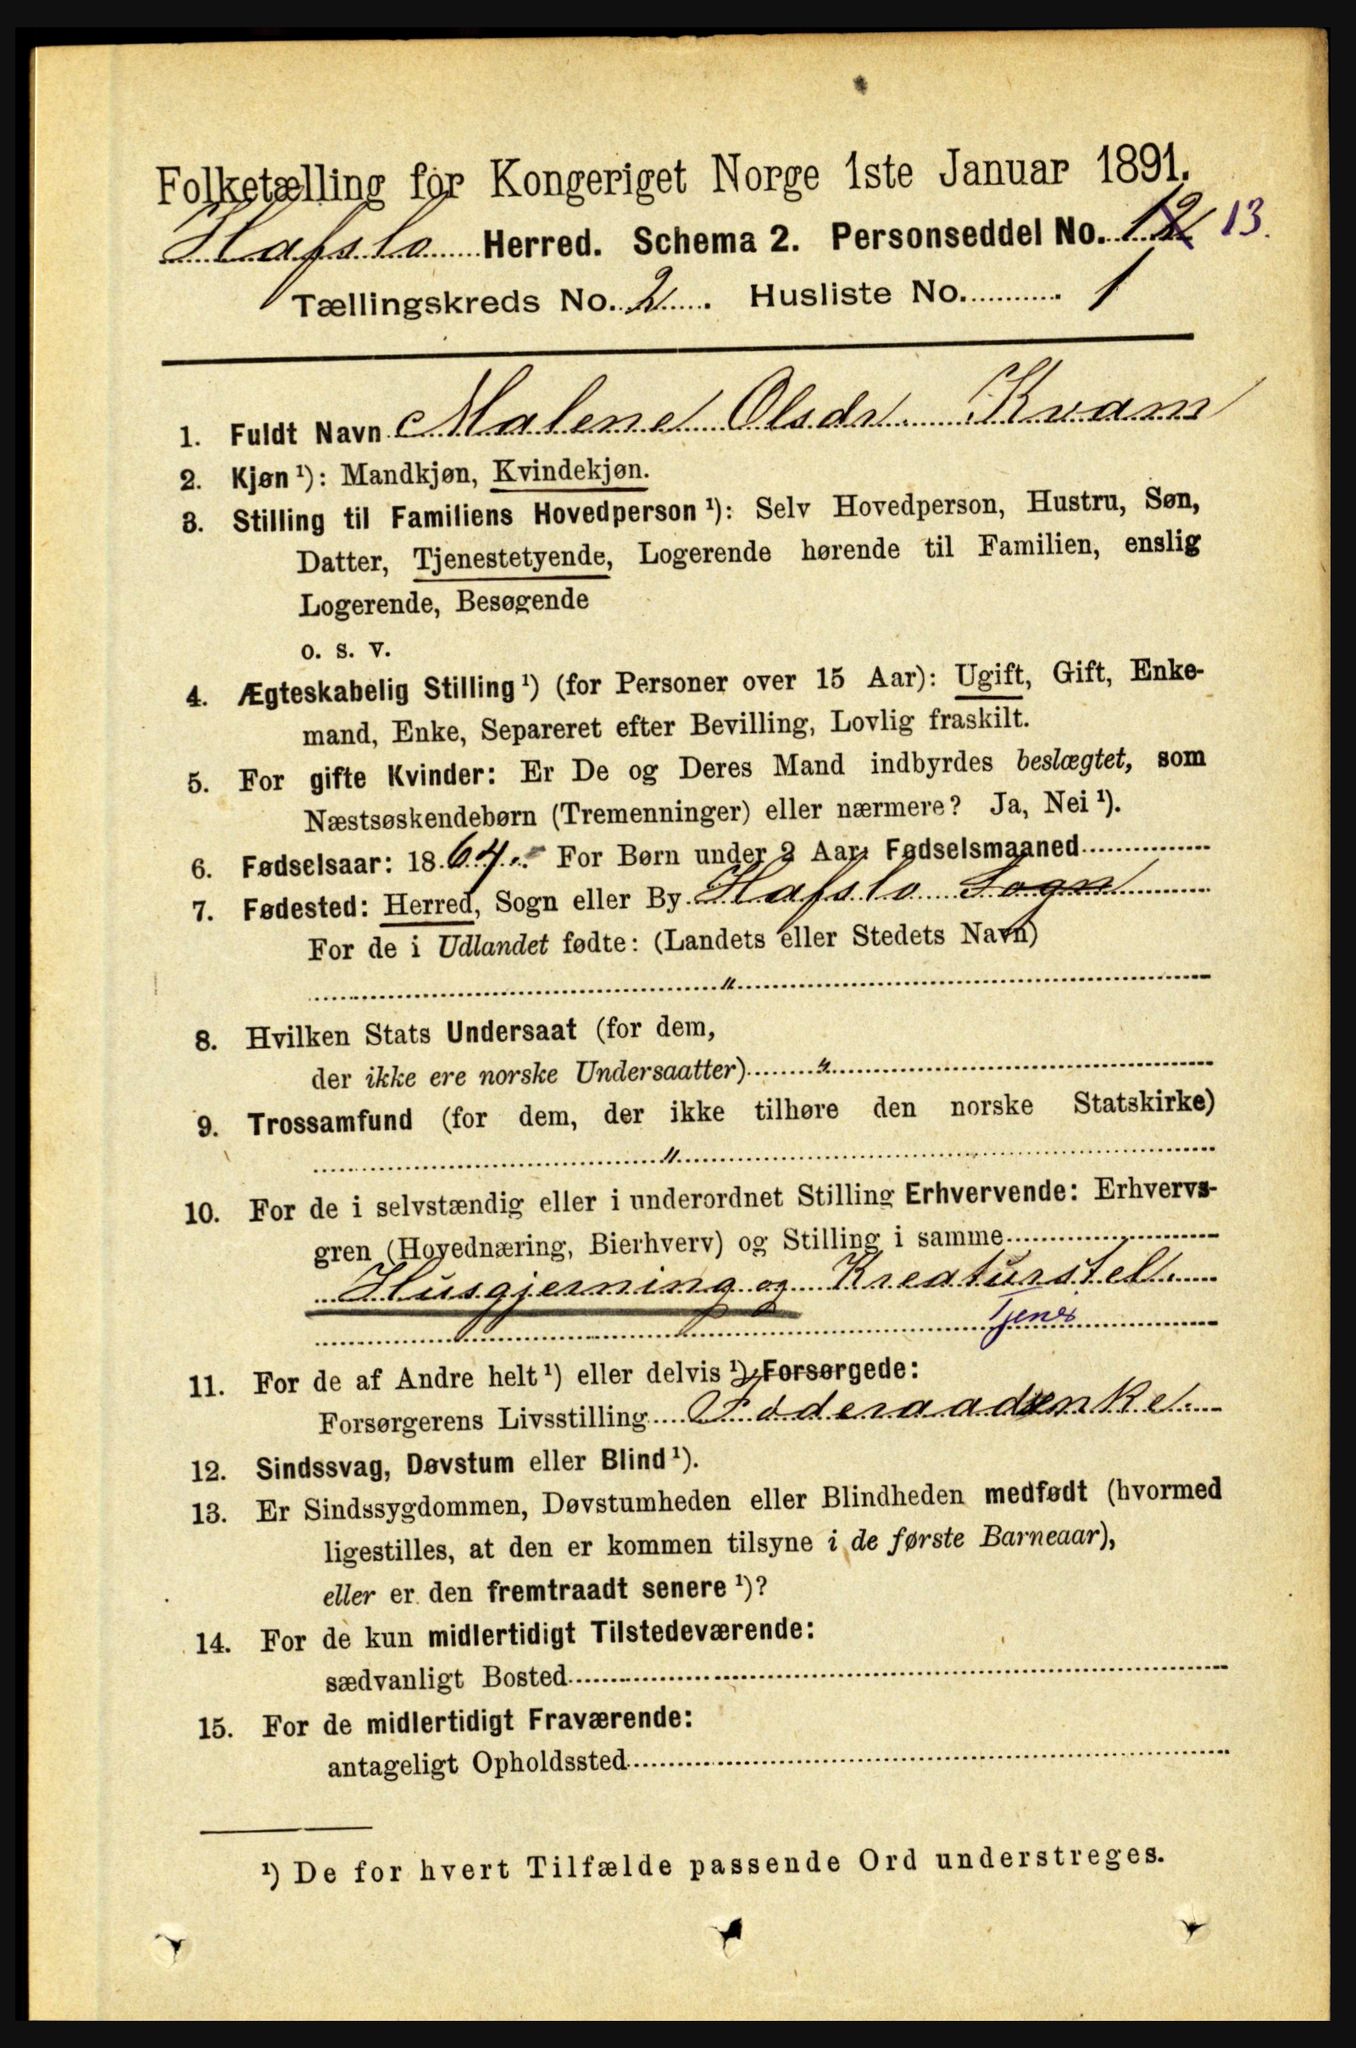 Folketælling for Kongeriget Norge 1ste Januar 1891.
Hafslo Herred. Schema 2. Personseddel No. 12 13.
Tællingskreds No. 2. Husliste No. 1
1. Fuldt Navn Malene Olsdr. Kvam
2. Kjøn ¹): Mandkjøn, Kvindekjøn.
3. Stilling til Familiens Hovedperson ¹): Selv Hovedperson, Hustru, Søn,
Datter, Tjenestetyende, Logerende hørende til Familien, enslig
Logerende, Besøgende
o. s. v.
4. Ægteskabelig Stilling ¹) (for Personer over 15 Aar): Ugift, Gift, Enke-
mand, Enke, Separeret efter Bevilling, Lovlig fraskilt.
5. For gifte Kvinder: Er De og Deres Mand indbyrdes beslægtet, som
Næstsøskendebørn (Tremenninger) eller nærmere? Ja, Nei ¹).
6. Fødselsaar: 1864. For Børn under 2 Aar: Fødselsmaaned
7. Fødested: Herred, Sogn eller By Hafslo Sogn
For de i Udlandet fødte: (Landets eller Stedets Navn)
"
8. Hvilken Stats Undersaat (for dem,
der ikke ere norske Undersaatter) "
9. Trossamfund (for dem, der ikke tilhøre den norske Statskirke)
"
10. For de i selvstændig eller i underordnet Stilling Erhvervende: Erhvervs-
gren (Hovednæring, Bierhverv) og Stilling i samme
Husgjerning og Kreaturstel.
Tjener
11. For de af Andre helt ¹) eller delvis ¹) Forsørgede:
Forsørgerens Livsstilling Føderaadsenke.
12. Sindssvag, Døvstum eller Blind ¹).
13. Er Sindssygdommen, Døvstumheden eller Blindheden medfødt (hvormed
ligestilles, at den er kommen tilsyne i de første Barneaar),
eller er den fremtraadt senere ¹)?
14. For de kun midlertidigt Tilstedeværende:
sædvanligt Bosted
15. For de midlertidigt Fraværende:
antageligt Opholdssted
¹) De for hvert Tilfælde passende Ord understreges.